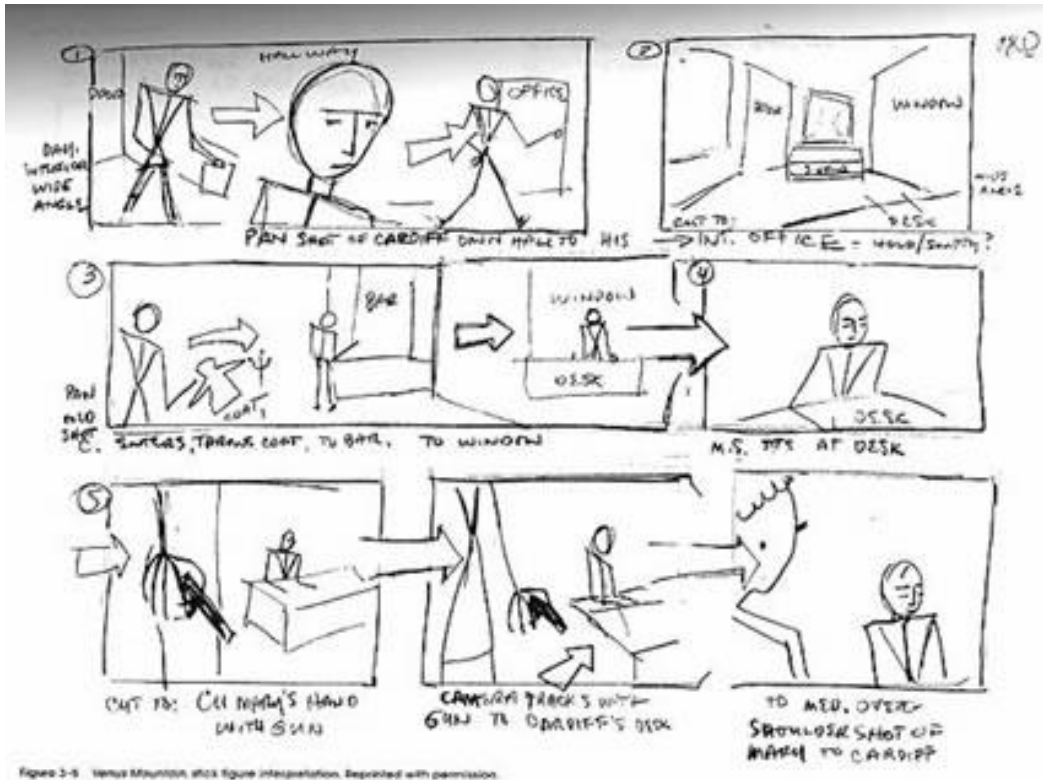 1
HALLWAY
DOOR
OFFICE
DAY.
INTERIOR
WIDE
ANGLE
PAN SHOT OF CARDIFF DOWN HALL TO HIS
2
DOOR
WINDOW
CUT TO:
DESK
WIDE
ANGLE
INT. OFFICE - HOLD/EMPTY?
3
BAR
WINDOW
COAT
DESK
PAN
MED
SHOT
C. ENTERS, THROWS COAT, TO BAR, TO WINDOW
4
DESK
M.S. SITS AT DESK
5
CUT TO: CU MARY'S HAND
WITH GUN
CAMERA TRACKS WITH
GUN TO CARDIFF'S DESK
TO MED. OVER-
SHOULDER SHOT OF
MARY TO CARDIFF
Figure 3-8 Venus Mountain, stick figure interpretation. Reprinted with permission.